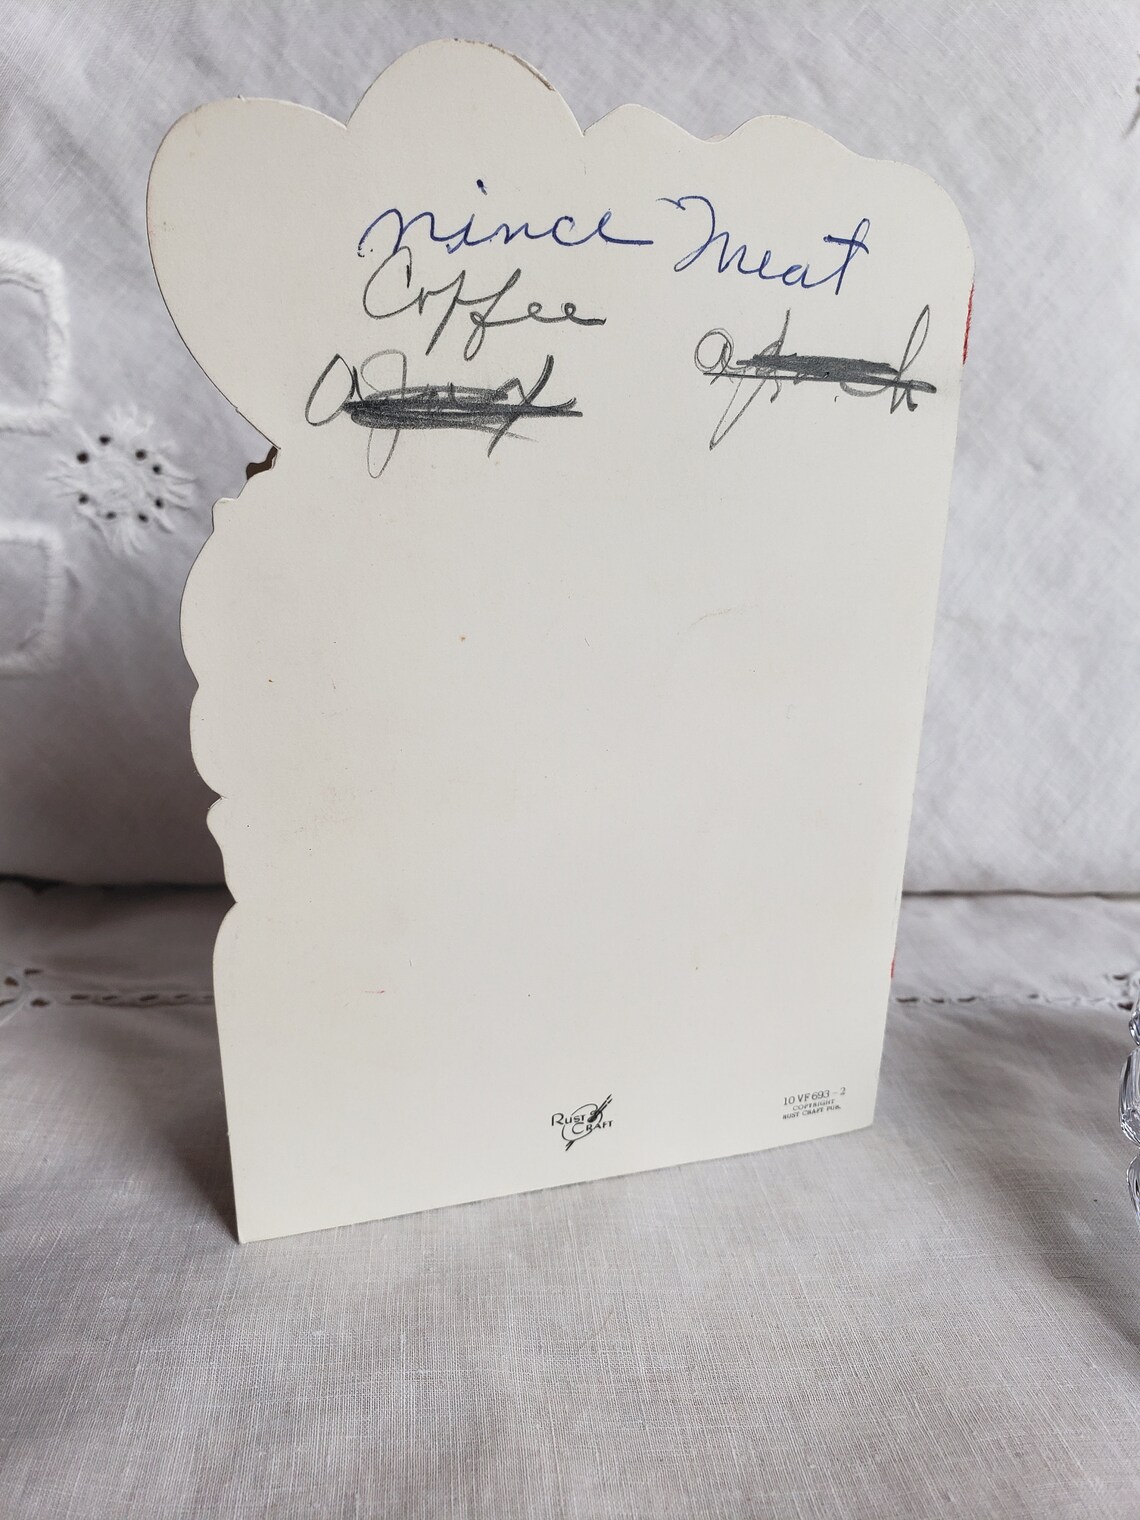 mince meat
Coffee
Ajax
RUST CRAFT
10 VF 693-2
COPYRIGHT
RUST CRAFT PUB.